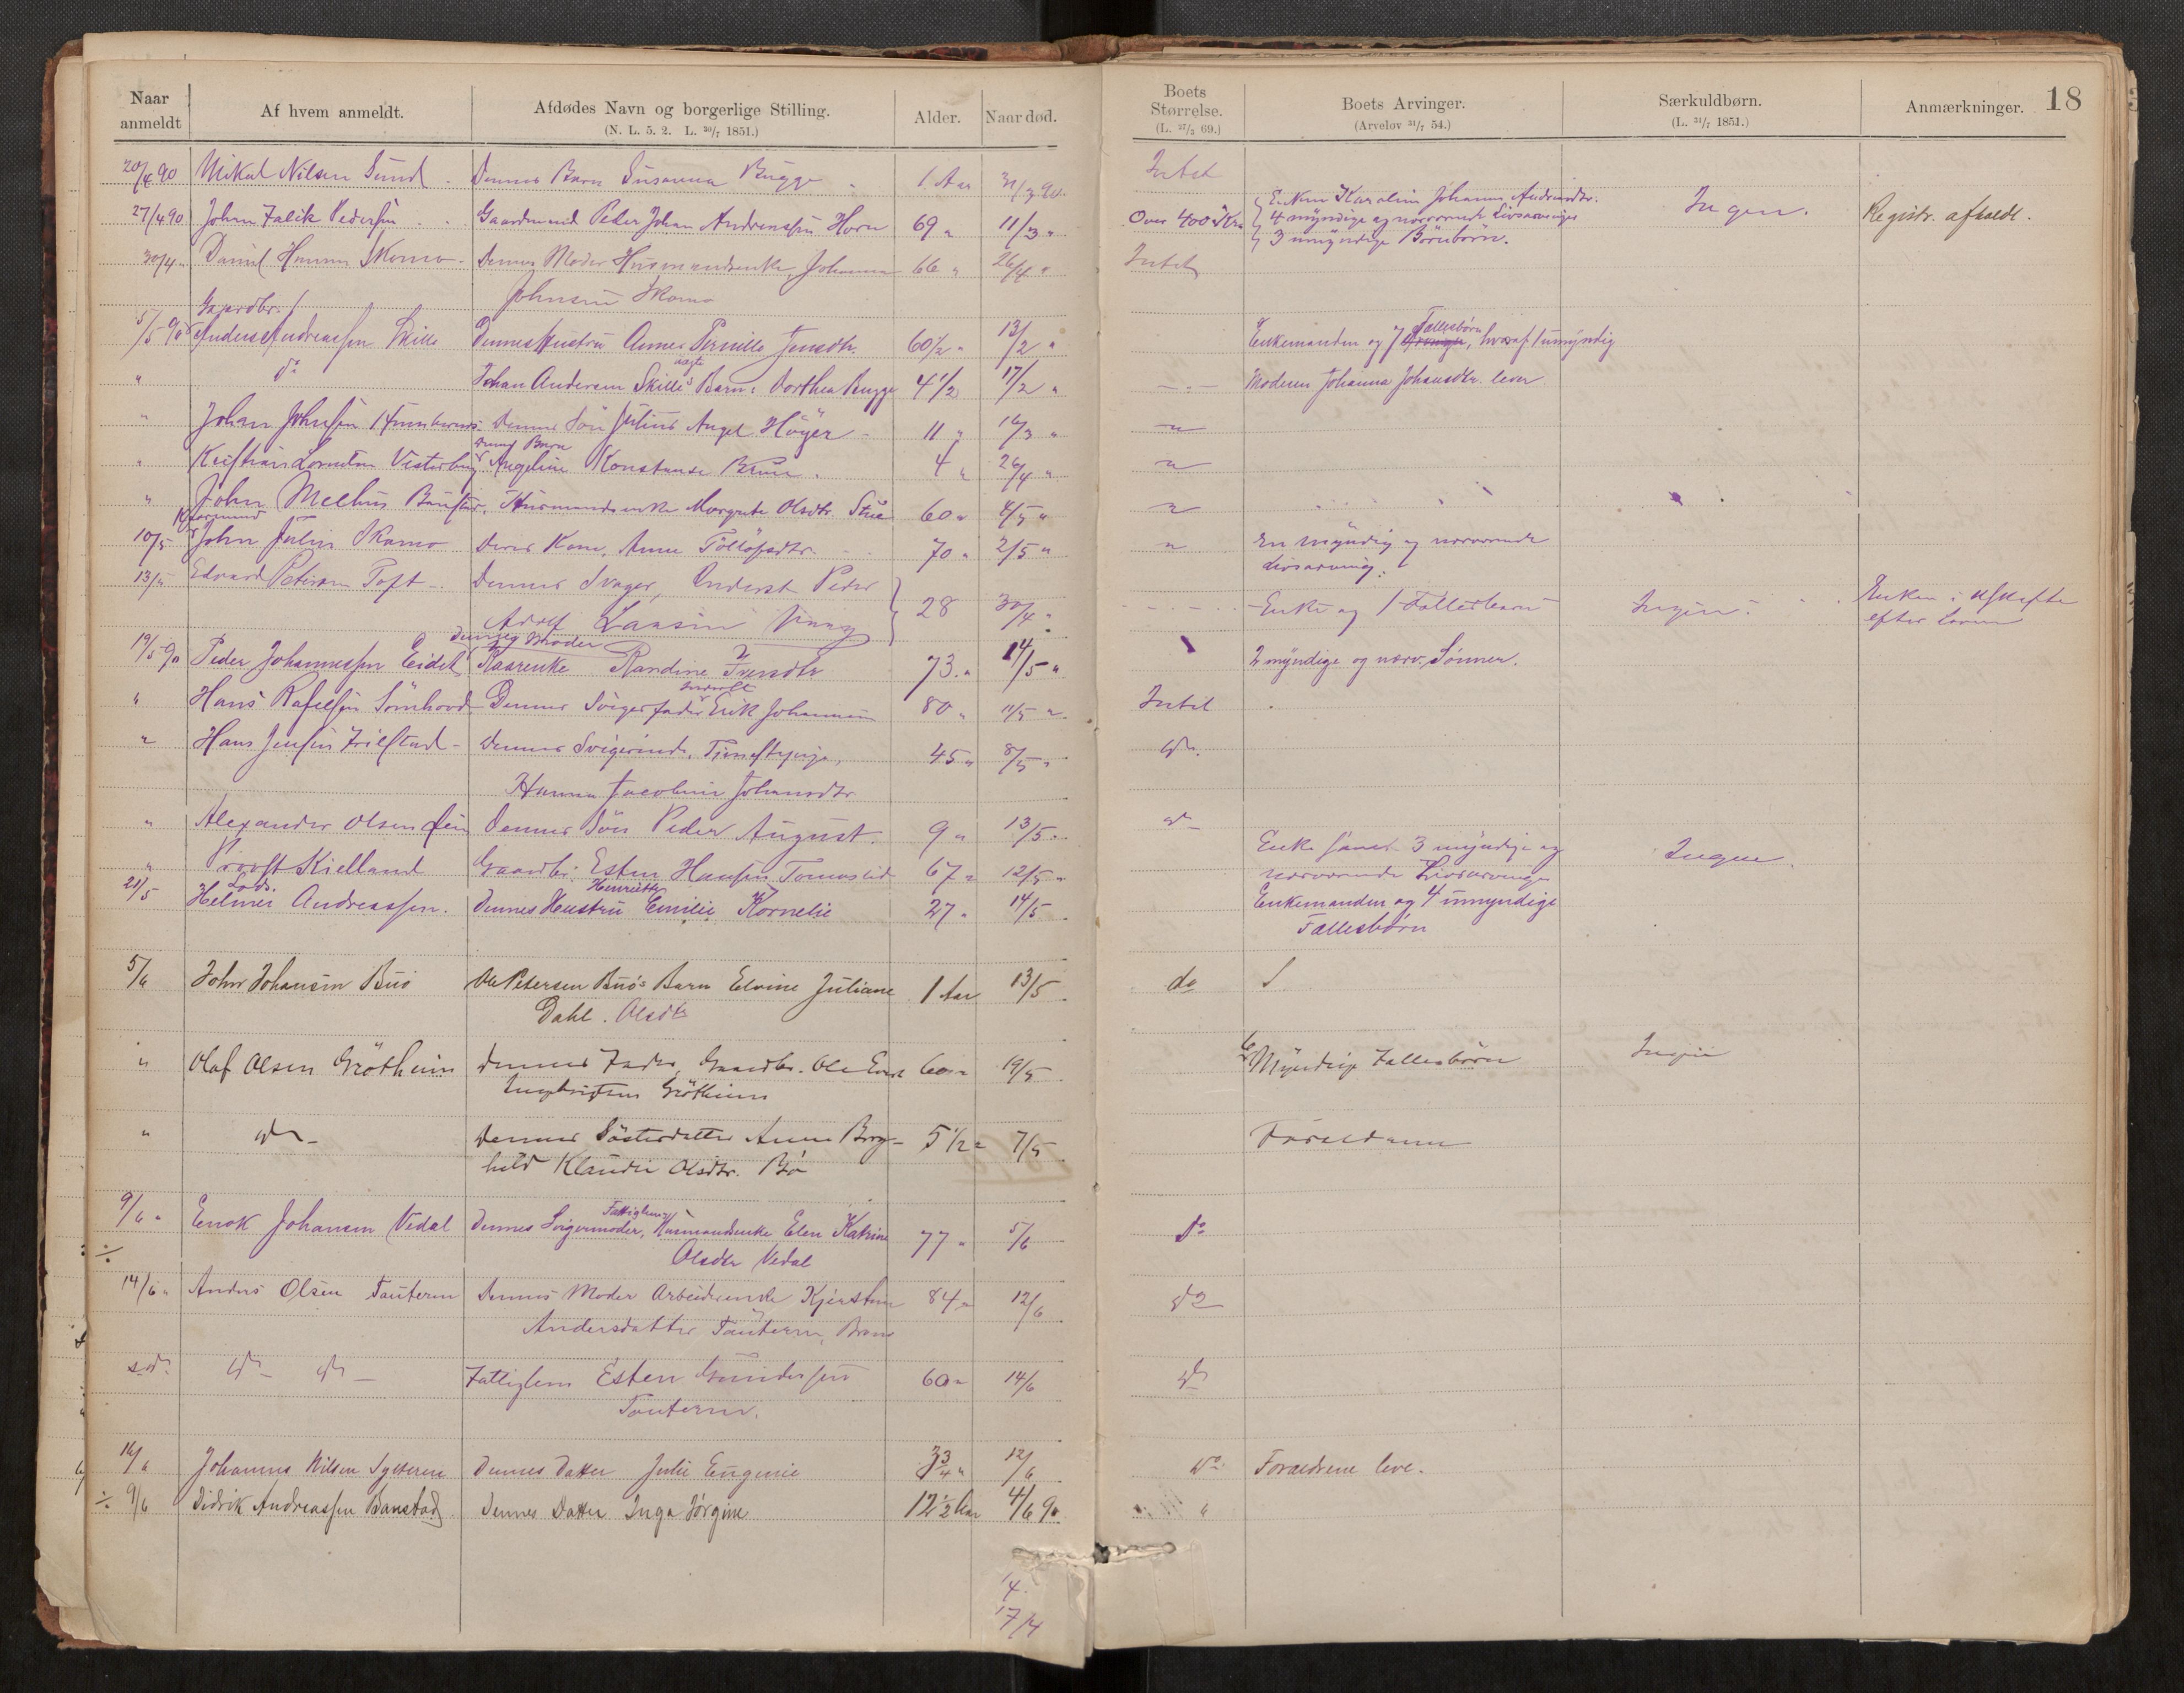 Naar anmeldt
Af hvem anmeldt.
Afdødes Navn og borgerlige Stilling.
(N. L. 5. 2. L. 20/7 1851.)
Alder.
Naar død.
Boets Størrelse.
(L. 27/3 69.)
Boets Arvinger.
(Arvelov 31/7 54.)
Særkuldbørn.
(L. 31/7 1851.)
Anmærkninger.
18
20/4 90 Mikal Nilsen Sund Dennes Barn Susanna Bugge 1 Aar 31/3 90. Intet
27/4 90 Johan Falik Pedersen Gaardmand Peder Johan Andreassen Horn 69 " 11/3 " Over 400 Kr. Enken Karolin Johanna Andreasdtr. Ingen. Registr. afholdt.
4 myndige og nærværende Livsarvinger
3 umyndige Børnebørn.
30/4 " Daniel Hansen Skomo Dennes Moder Husmandsenke, Johanna 66 " 26/4 " Intet
Johnsen Skomo
Gaardbr.
5/5 90 Anders Andreassen Skille Dennes Hustru Anne Pernille Jensdtr. 60 1/2 " 13/2 " Enkemanden og 7 Fællesbørn, hvoraf 1 umyndig
" do Johan Andersen Skille's uægte Barn: Dorthea Bugge 4 1/2 17/2 " Moderen Johanna Johansdtr. lever
" Johan Johnsen Dennes Søn Julius Angel Höyer 11 " 16/3 " "
" Kristian Lorntsen Dennes Barn Angeline Konstanse 4 " 26/4 " "
" John Melhus Husmandsenke Margrete Olsdtr. Stue 60 " 4/5 " "
10/5 Kaarmand John Julin Skomo Deres Kone, Anne Tolløfsdtr. 70 " 2/5 " " En myndig og nærværende
Livsarving.
13/5 Edvard Petersen Toft Dennes Svager, Peder
Adolf 28 30/4 " Enke og 1 Fællesbarn Ingen. Enken i Uskifte
efter Loven
19/5 90 Peder Johannessen Eidet Dennes Moder Kaarenke Randine Iversdtr 73 " 14/5 " 2 myndige og nærv. Sønner.
" Hans Rafelsen Sömhovd Dennes Svigerfader Inderst Erik Johannesen 80 " 11/5 " Intet
" Hans Jensen Dennes Svigerinde, Tjenestepige, 45 " 8/5 " do.
Hanna Jacobine Johansdtr
" Alexander Olsen Dennes Søn Peder August. 9 " 13/5 " do
" Provst Kielland Gaardbr: Esten Hansen 67 " 12/5 " Enke samt 3 myndige og Ingen.
nærværende Livsarvinger
21/5 Lods. Helmer Andreassen. Dennes Hustru Emilie Henriette Kornelie 27 " 14/5 Enkemanden og 4 umyndige
Fællesbørn
5/6 John Johansen Buö Ole Petersen Buö's Barn Elvine Juliane 1 Aar 13/5 do
Dahl. Olsdtr
" Olaf Olsen Grötheim Dennes Fader, Gaardbr. Ole 60 " 19/5 6 Myndige Fællesbörn Ingen
Ingebrigtsen Grötheim
" do Dennes Søsterdatter Anne Borg- 5 1/2 " 7/5 Forældrene
hild Klaudie Olsdtr. Bö
9/6 " Enok Johansen Vedal Dennes Svigermoder, Fattiglem Husmandsenke Elen Katrine 77 " 5/6 do
÷ Olsdtr Vedal
14/6 " Anders Olsen Tautern Dennes Moder Arbeiderenke Kjerstine 84 " 12/6 do
Andersdatter Tautern,
s.D. do do Fattiglem Esten Gundersen 60 " 14/6 do
Tautern.
16/6 Johannes Nilsen Dennes Datter Julie Eugenie 3 3/4 " 12/6 do Forældrene leve.
÷ 9/6 Didrik Andreassen Banstad Dennes Datter Inga Jörgine 12 1/2 Aar 4/6 90 "
14
17/4